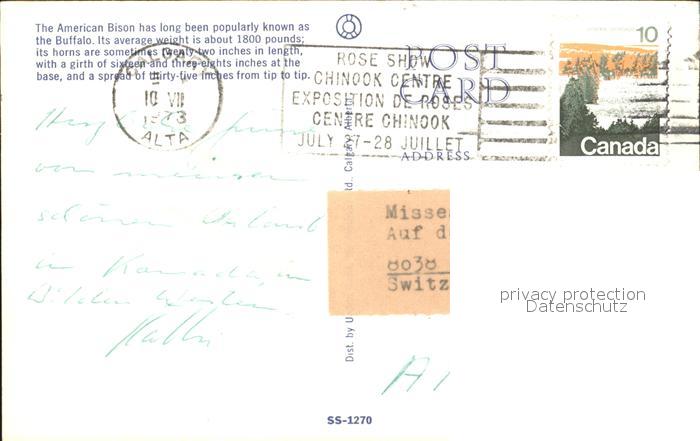 The American Bison has long been popularly known as
the Buffalo. Its average weight is about 1800 pounds;
its horns are sometimes twenty-two inches in length,
with a girth of sixteen and three-eights inches at the
base, and a spread of thirty-five inches from tip to tip.
10 VII
ALTA
ROSE SHOW
CHINOOK CENTRE
EXPOSITION DE ROSES
CENTRE CHINOOK
JULY 27-28 JUILLET
POST
CARD
ADDRESS
10
Canada
von meinem
schönen Urlaub
in Kanada, im
Wilden Westen.
Dist. by
Ltd., Calgary, Alberta
Misse
Auf d
8038
Switz
privacy protection
Datenschutz
A1
SS-1270